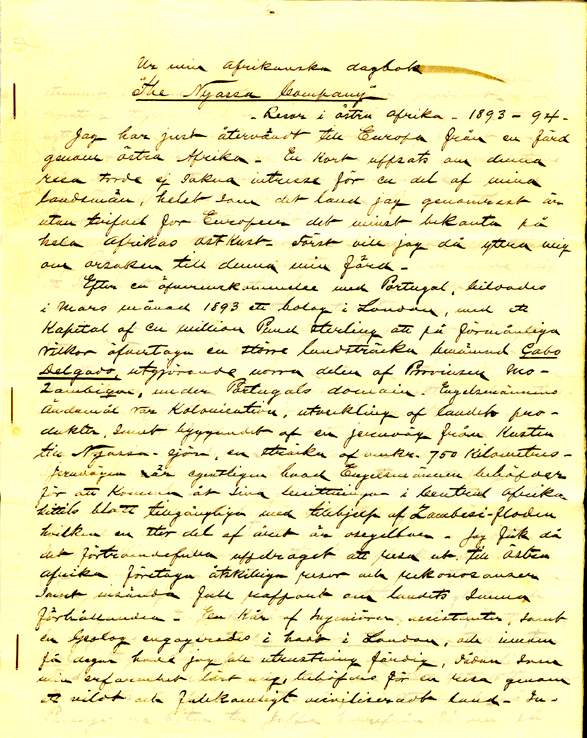 Ur min Afrikanska dagbok
"The Nyassa Company"
- Resor i östra Afrika - 1893 - 94 -
Jag har just återvändt till Europa från en färd
genom östra Afrika - En kort uppsats om denna
resa torde ej sakna intresse för en del af mina
landsmän, helst som det land jag genomrest är
utan tvifvel för Europeer det minst bekanta på
hela Afrikas ostkust - Först vill jag då yttra mig
om orsaken till denna min färd -
Efter en öfverenskommelse med Portugal, bildades
i Mars månad 1893 ett bolag i London, med ett
Kapital af en million Pund sterling att på förmånliga
vilkor öfvertaga en större landsträcka benämnd Cabo
Delgado, utgörande norra delen af Provinsen Mo-
zambique, under Portugals domain. Engelsmännens
ändamål var Kolonisation, utveckling af landets pro-
dukter samt byggandet af en jernväg från Kusten
till Nyassa-sjön, en sträcka af omkr. 750 Kilometres -
Jernvägen är egentligen hvad Engelsmännen behöfver
för att komma åt sina besittningar i Central Afrika
hittils blott tillgängliga med tillhjelp af Zambesi-floden
hvilken en stor del af året är osegelbar - Jag fick då
det förtroendefulla uppdraget att resa ut till östra
Afrika, företaga åtskilliga resor och rekognosceringar
samt insända full rapport om landets
förhållanden - En Kår af Ingeniörer, assistenter, samt
en Geolog engagerades i hast i London, och inom
få dagar hade jag all utrustning färdig, sådan som
min erfarenhet lärt mig, behöfdes för en resa genom
ett vildt och fullkomligt ociviliseradt land - In-